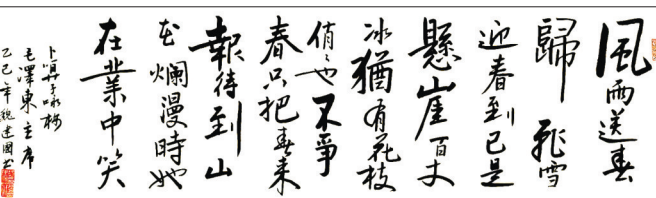 風雨送春
歸飛雪
迎春到已是
懸崖百丈
冰猶有花枝
俏也不爭
春只把春來
報待到山
花爛漫時她
在叢中笑
卜算子咏梅
毛澤東主席
乙巳年魏建國书